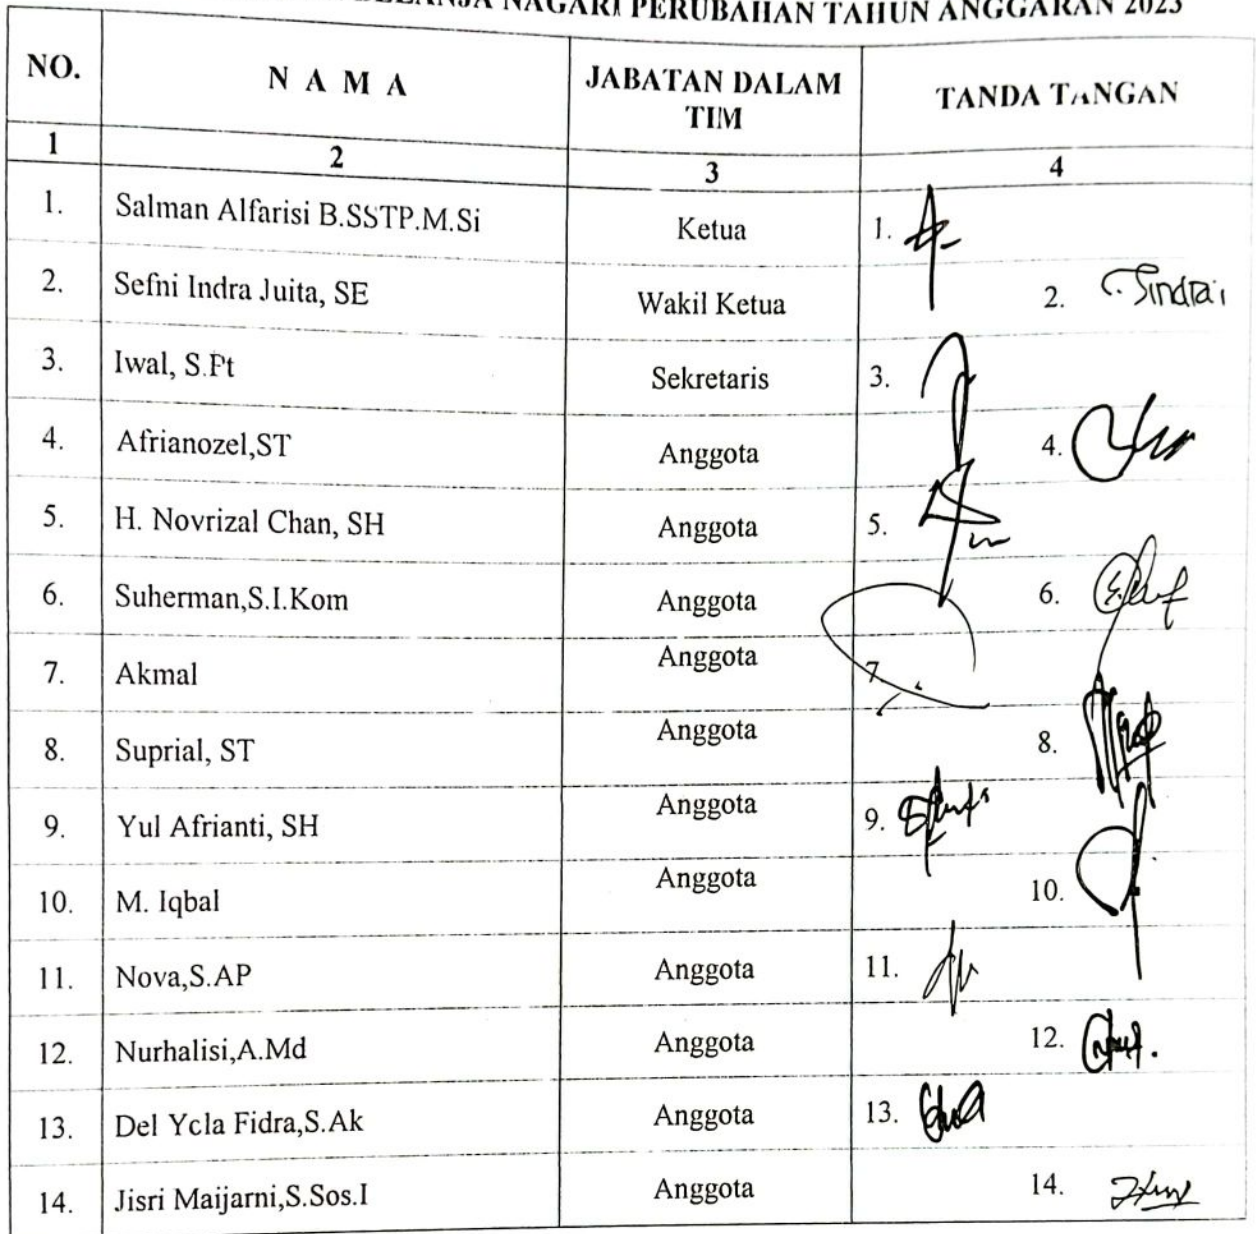 BELANJA NAGARI PERUBAHAN TAHUN ANGGARAN 2023
NO. N A M A JABATAN DALAM TIM TANDA TANGAN
1 2 3 4
1. Salman Alfarisi B.SSTP.M.Si Ketua 1.
2. Sefni Indra Juita, SE Wakil Ketua 2.
3. Iwal, S.Pt Sekretaris 3.
4. Afrianozel,ST Anggota 4.
5. H. Novrizal Chan, SH Anggota 5.
6. Suherman,S.I.Kom Anggota 6.
7. Akmal Anggota 7.
8. Suprial, ST Anggota 8.
9. Yul Afrianti, SH Anggota 9.
10. M. Iqbal Anggota 10.
11. Nova,S.AP Anggota 11.
12. Nurhalisi,A.Md Anggota 12.
13. Del Yola Fidra,S.Ak Anggota 13.
14. Jisri Maijarni,S.Sos.I Anggota 14.